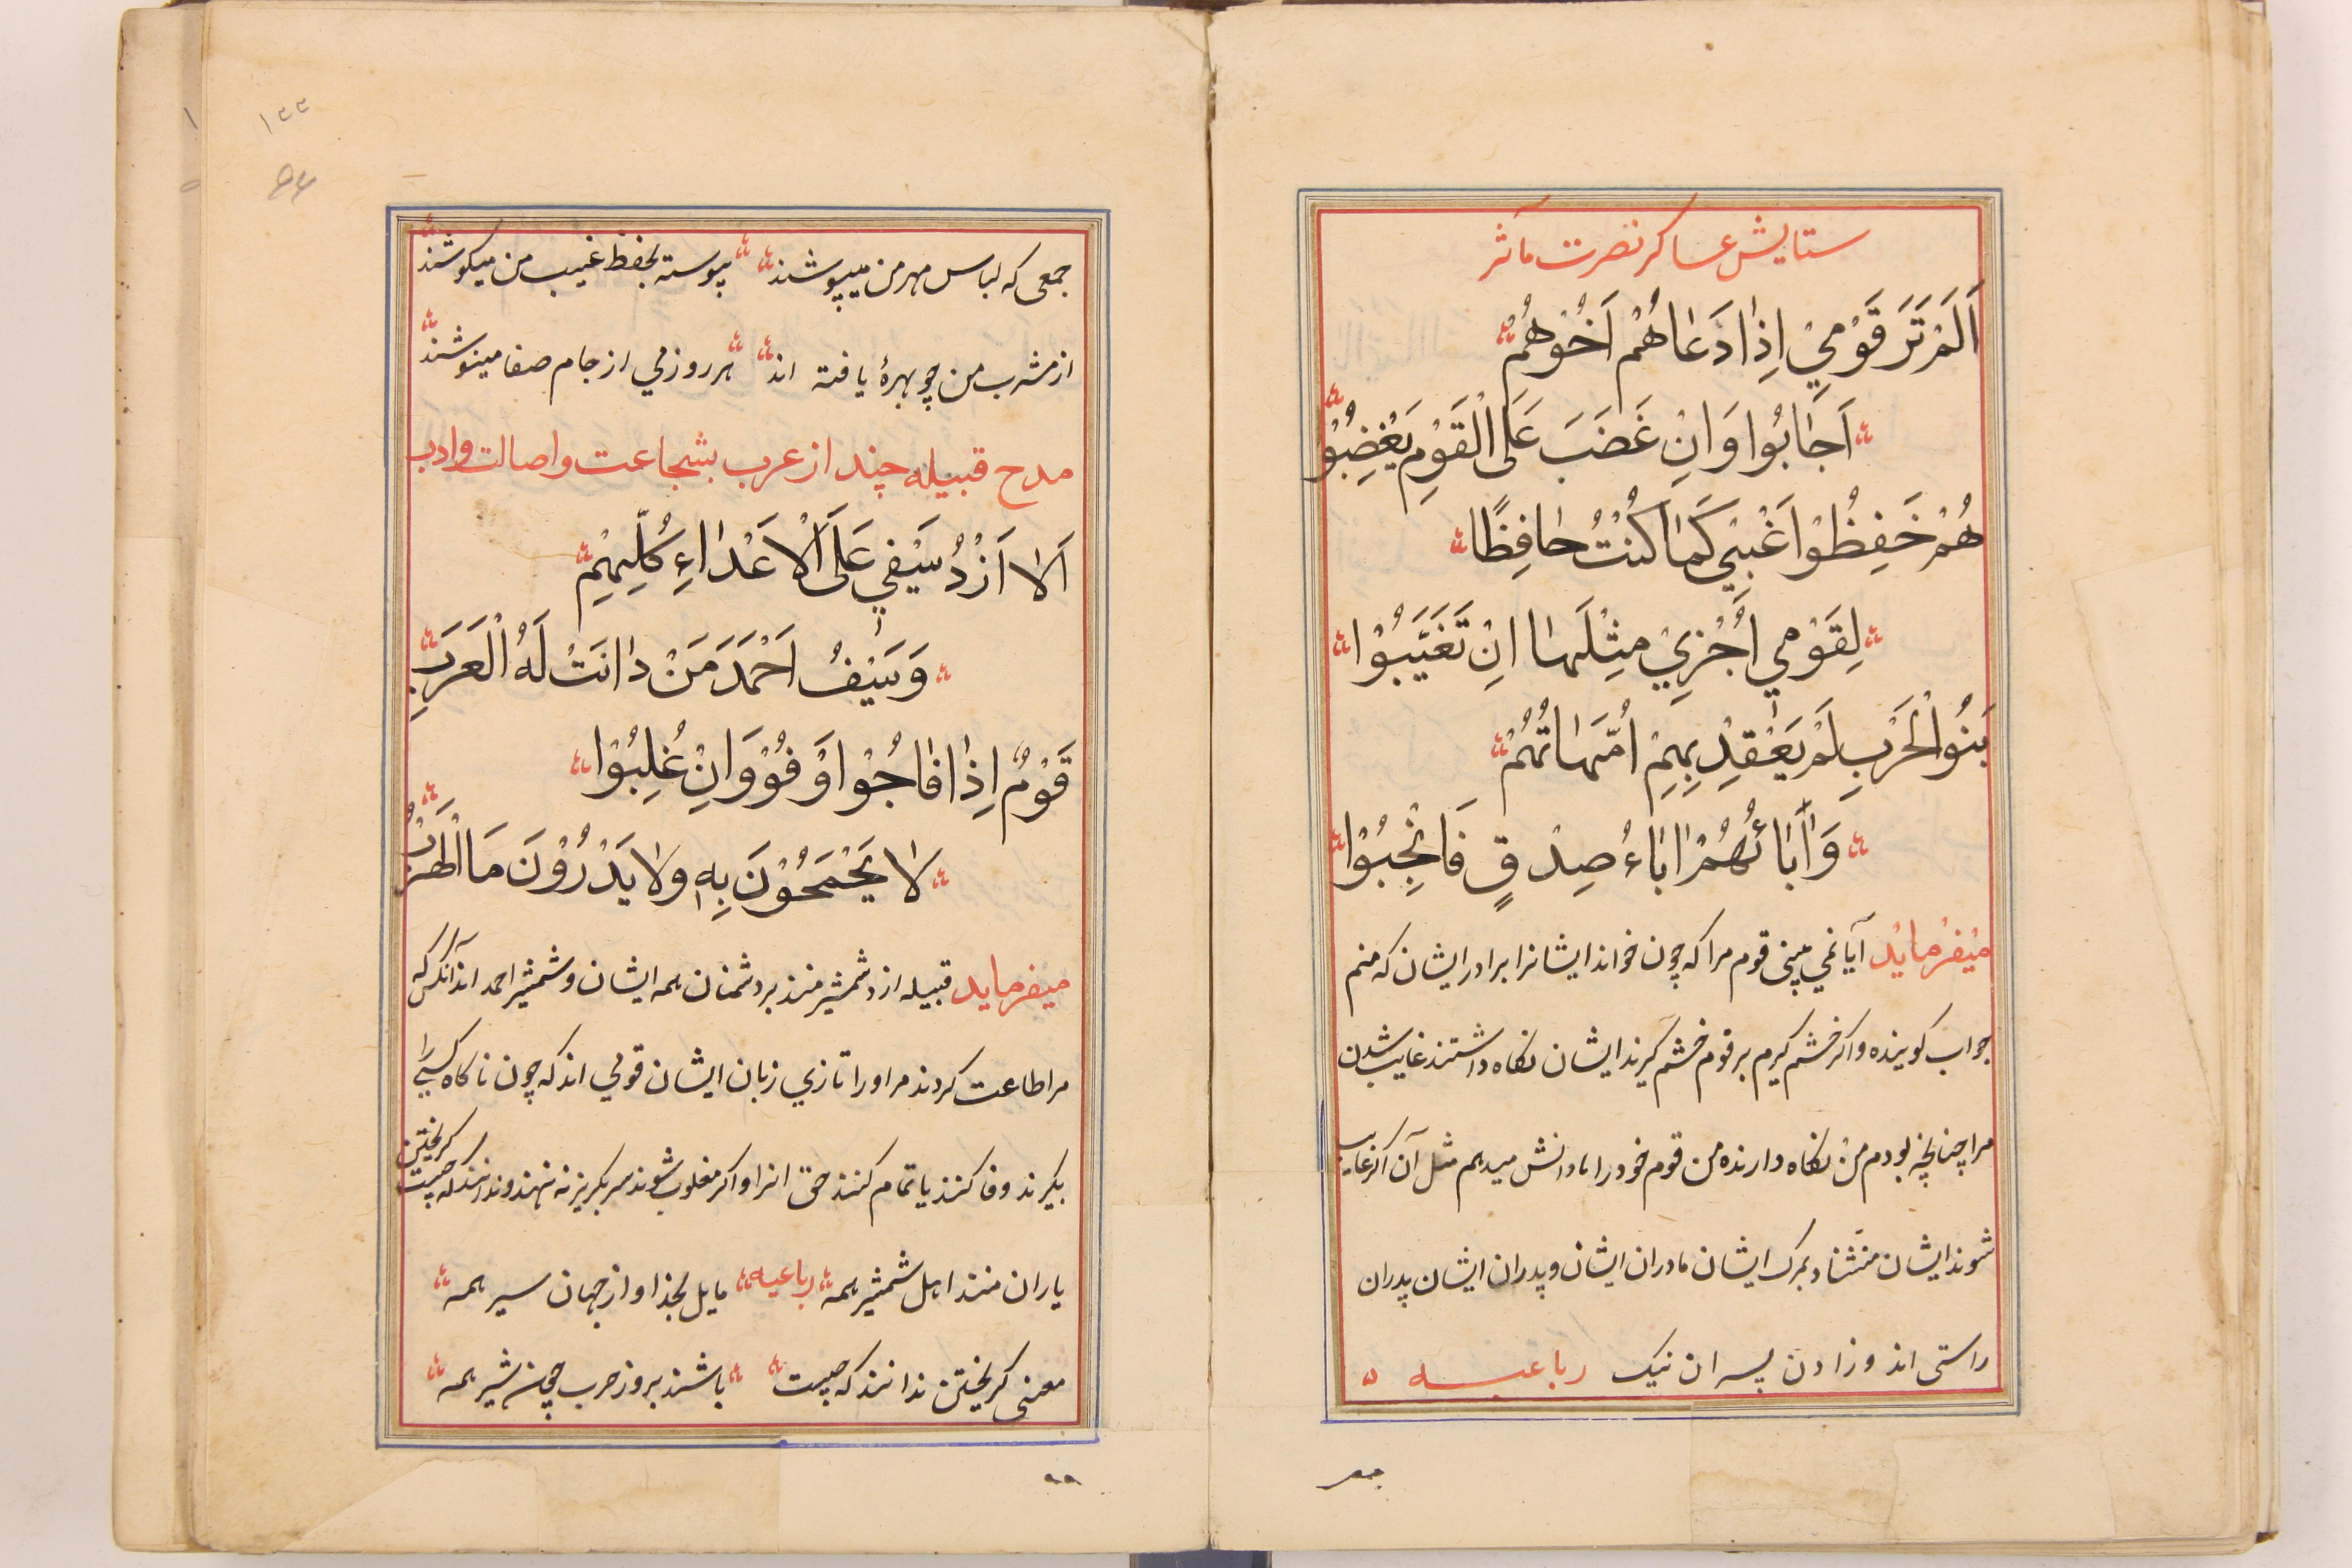 ستایش عساکر نصرت مآثر
اَلَمْ تَرَ قَوْمِيْ اِذَا دَعَاهُمْ اَخُوْهُمْ
اَجَابُوا وَاِنْ غَضَبَ عَلَى الْقَوْمِ يَغْضِبُوْا
هُمْ حَفِظُوْا غَيْبِيْ كَمَا كُنْتُ حَافِظًا
لِقَوْمِي اُجْزِيْ مِثْلَهَا اِنْ تَغَيَّبُوْا
بَنُوالْحَرْبِ لَمْ يَقْعِدْ بِهِمْ اُمَّهَاتُهُمْ
وَاٰبَائُهُمْ اٰبَاءُ صِدْقٍ فَاَنْجِبُوْا
میفرماید آیا نمی بینی قوم مرا که چون خواند ایشانرا برادر ایشان که منم
جواب کوینده و اکر خشم کیرم بر قوم خشم کیرند ایشان نکاه داشتند غایب شدن
مرا چنانچه بودم من نکاه دارنده من قوم خود را پاداش میدهم مثل آن اکر غایب
شوند ایشان ایشان مادران ایشان و پدران ایشان پدران
راستی اند و زادن پسران نیک رباعیه
جمعی
جمعی که لباس مهر من میپوشند پیوسته بحفظ غیب من میکوشند
از مشرب من چو بهرهٔ یافته اند هر روز می از جام صفا مینوشند
مدح قبیله چند از عرب بشجاعت و اصالت و ادب
اَلَا اَزْدُ سَيْفِي عَلَى الْاَعْدَاءِ كُلِّهِمْ
وَسَيْفُ اَحْمَدَ مَنْ دَانَتْ لَهُ الْعَرَبِ
قَوْمٌ اِذَا فَاجُوْا وَفُوْ وَاِنْ غُلِبُوْا
لَا يَحْمَحُوْنَ بِهِ وَلَا يَدْرُوْنَ مَا الْهَرَبُ
میفرماید قبیله ازد شمشیر منند بر دشمنان همه ایشان و شمشیر احمد اند آنکس که
مر اطاعت کردند مر او را تازی زبان ایشان قومی اند که چون ناکاه کسیرا
بکیرند وفا کنند یا تمام کنند حق انرا و اکر مغلوب شوند سر بکریز نه نهند و ندانند که چیست کریختن
یاران منند اهل شمشیر همه رباعیه مایل بخدا و از جهان سیر همه
معنی کریختن ندانند که چیست باشند بروز حرب چون شیر همه
۹۹
۱۳۳